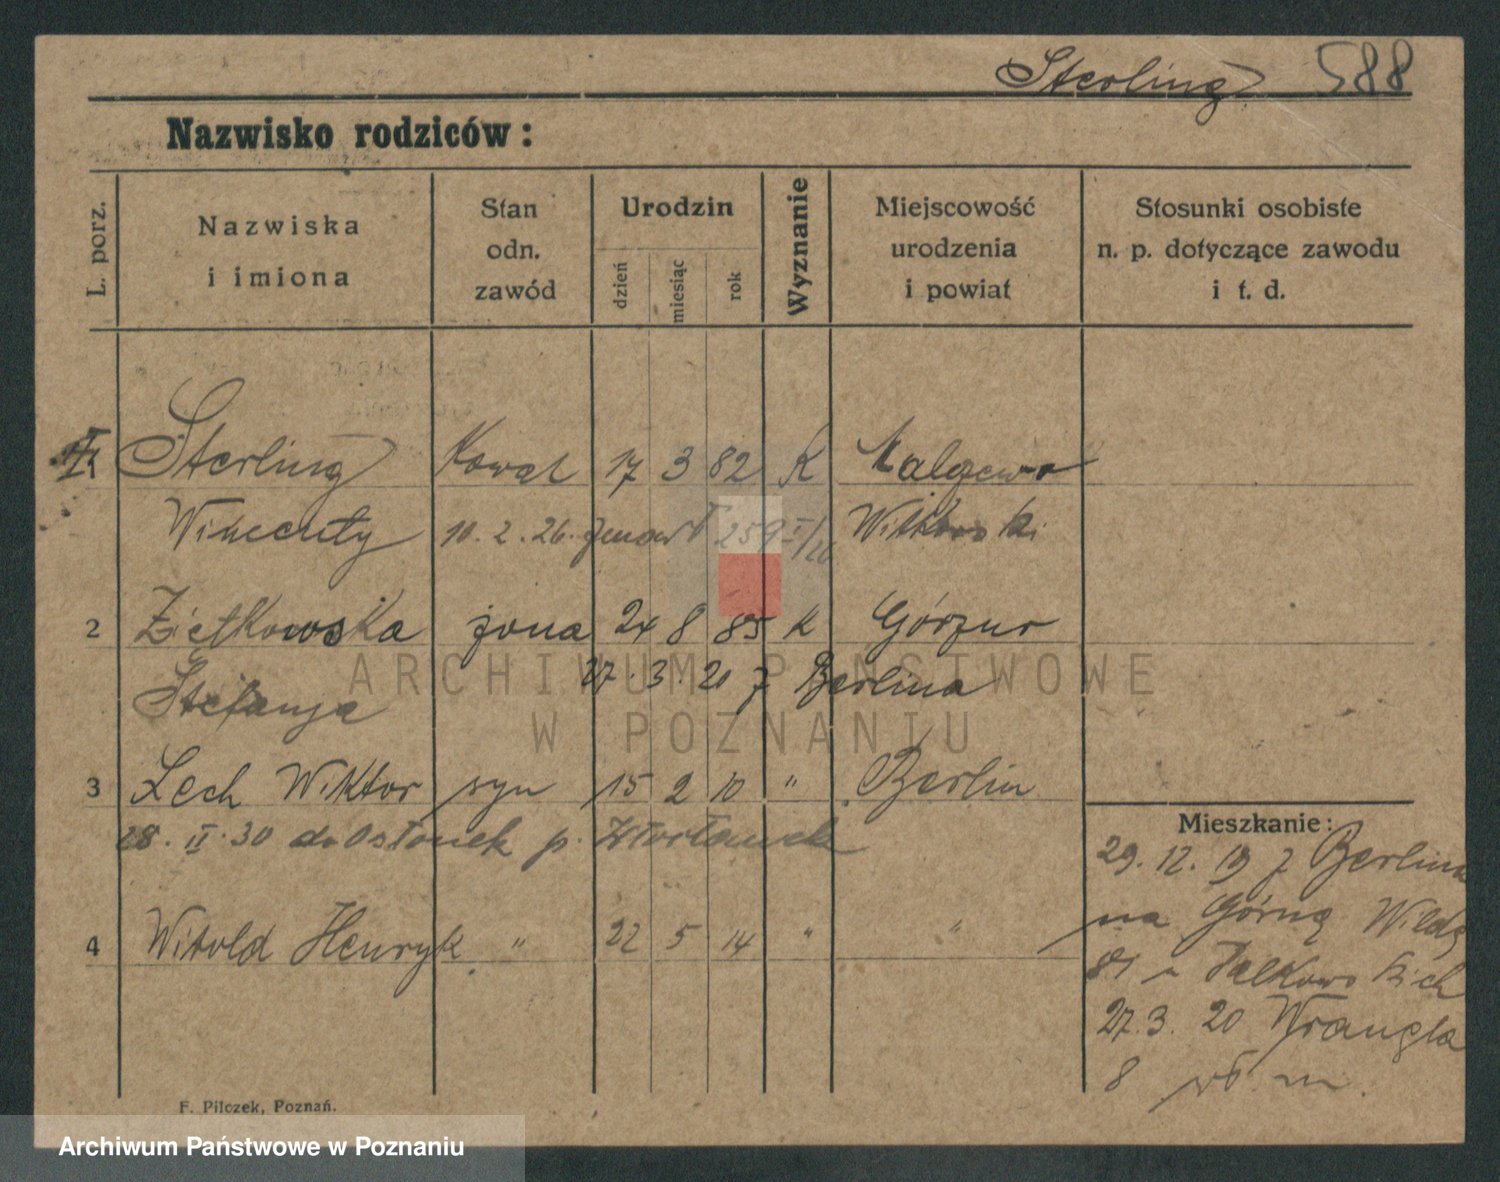 Sterling 588
Nazwisko rodziców:
L. porz.
Nazwiska
i imiona
Stan
odn.
zawód
Urodzin
dzień
miesiąc
rok
Wyznanie
Miejscowość
urodzenia
i powiat
Stosunki osobiste
n. p. dotyczące zawodu
i t. d.
Sterling Kowal 17 3 82 K
Wincenty 10. 2. 26. 259 I/26 Witkowski
2 Ziętkowska żona 24 8 85 K
27. 3. 20 z Berlina
Stefanja
3 Lech Wiktor syn 15 2 10 " Berlin
28. II. 30 do Osłonek p. Włocławek
4 Witold Henryk " 22 5 14 " "
Mieszkanie:
29. 12. 19 z Berlina
na Górną Wildę
27. 3. 20 Wrangla
8 wł. m.
F. Pilczek, Poznań.
ARCHIWUM PAŃSTWOWE
W POZNANIU
Archiwum Państwowe w Poznaniu